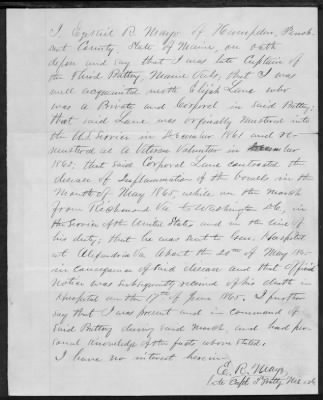 I, Ezekiel R. Mayo of Hampden, Penob-
scot County, State of Maine, on oath
depose and say that I was late Captain of
the Third Battery, Maine Vols, that I was
well acquainted with Elijah Lane who
was a Private and Corporal in said Battery;
that said Lane was originally mustered into
the U.S. Service in December 1861 and re-
mustered as a Veteran Volunteer in
1863; that said Corporal Lane contracted the
disease of Inflammation of the bowels in the
Month of May 1865, while on the march
from Richmond Va to Washington D.C., in
the Service of the United States and in the line of
his duty; that he was sent to Gen. Hospital
at Alexandria Va about the 20th of May 1865
in consequence of said disease and that official
notice was subsequently received of his death in
Hospital on the 17th of June 1865. I further
say that I was present and in command of
said Battery during said march, and had per-
sonal knowledge of the facts above stated;
I have no interest herein
E. R. Mayo
late Capt 3d Batty Me